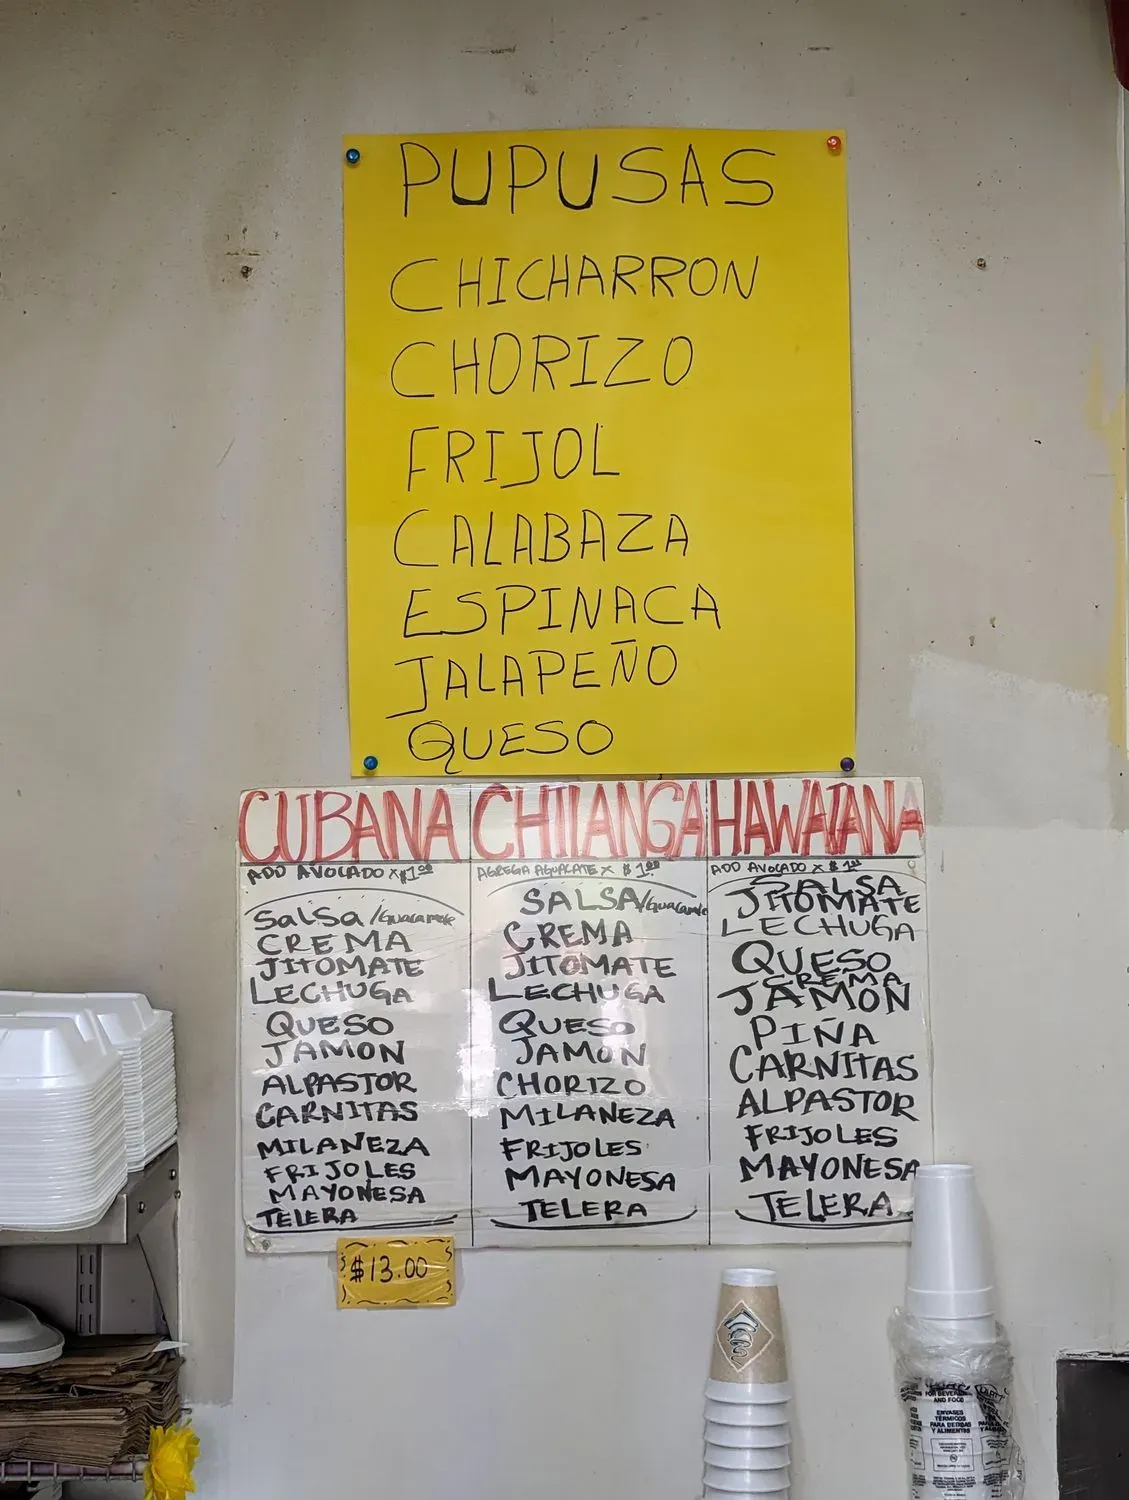 PUPUSAS
CHICHARRON
CHORIZO
FRIJOL
CALABAZA
ESPINACA
JALAPEÑO
QUESO
CUBANA
ADD AVOCADO x $1.00
SALSA/Guacamole
CREMA
JITOMATE
LECHUGA
QUESO
JAMON
ALPASTOR
CARNITAS
MILANEZA
FRIJOLES
MAYONESA
TELERA
$13.00
CHILANGA
AGREGA AGUACATE x $1.00
SALSA/Guacamole
CREMA
JITOMATE
LECHUGA
QUESO
JAMON
CHORIZO
MILANEZA
FRIJOLES
MAYONESA
TELERA
HAWAIANA
ADD AVOCADO x $1.00
SALSA
JITOMATE
LECHUGA
QUESO
CREMA
JAMON
PIÑA
CARNITAS
ALPASTOR
FRIJOLES
MAYONESA
TELERA
AND FOOD
ENVASES
TÉRMICOS
PARA BEBIDAS
Y ALIMENTOS